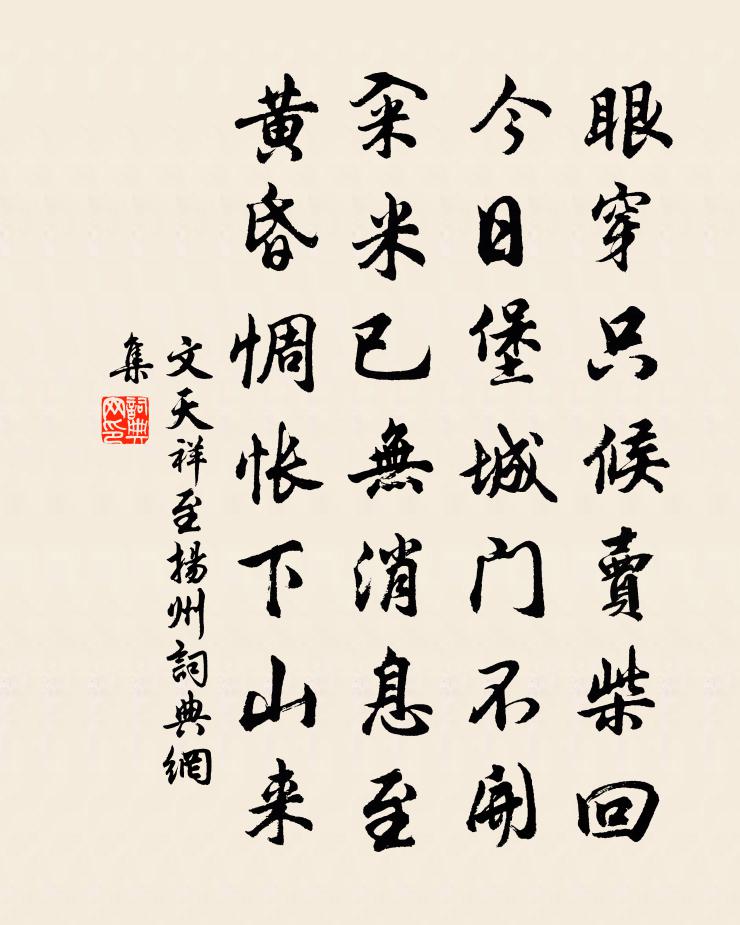 眼穿只候賣柴回
今日堡城门不開
籴米已無消息至
黄昏惆怅下山来
文天祥至揚州詞典網
集
詞典
网印